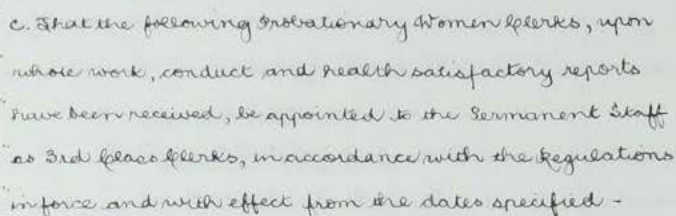 c. That the following Probationary Women Clerks, upon
whose work, conduct and health satisfactory reports
"have been received, be appointed to the Permanent Staff
"as 3rd Class Clerks, in accordance with the Regulations
"in force and with effect from the dates specified -